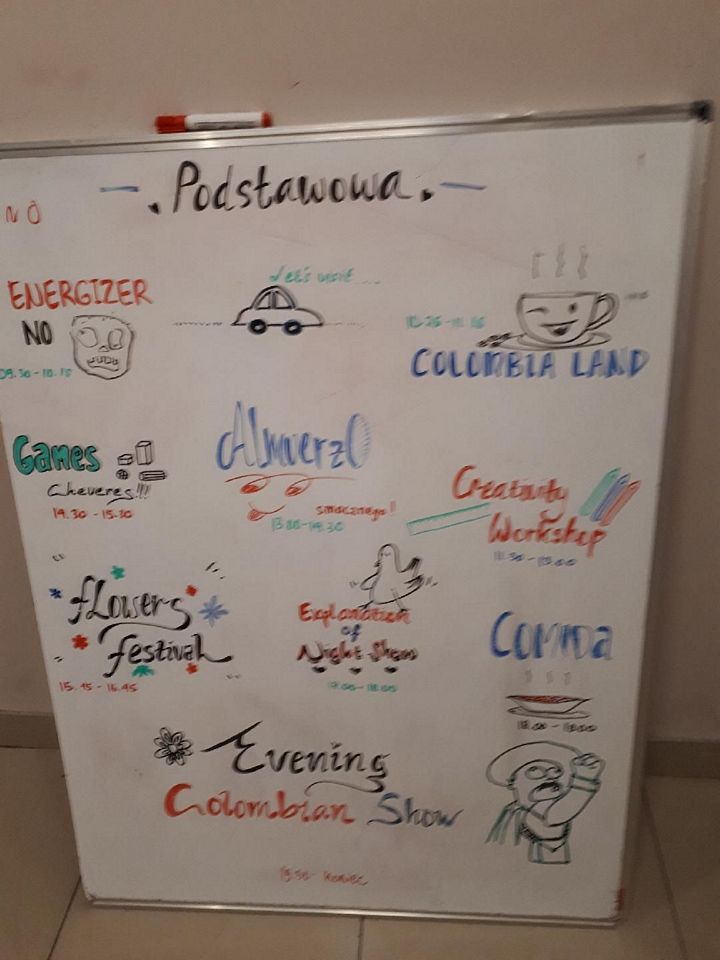 Podstawowa
ENERGIZER
NO
09.30 - 10.15
Let's visit ...
COLOMBIA LAND
Games
Cheveres!!!
14.30 - 15.30
Almuerzo
smacznego!
13.00-14.30
Creativity
Workshop
flowers
festival
15.45 - 16.45
Explanation
of
Night Show
17.00-18.00
COMIDA
Evening
Colombian Show
Koniec